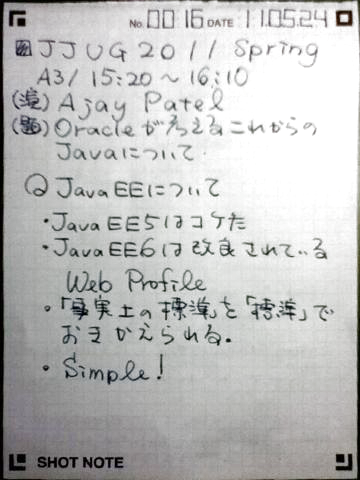 No. 0016 DATE 11.05.24
JJUG 2011 Spring
A3/ 15:20〜16:10
(演) Ajay Patel
(題) Oracleが考えるこれからの
Javaについて
Q JavaEEについて
・JavaEE5はコケた
・JavaEE6は改良されている
Web Profile
・「事実上の標準」を「標準」で
おきかえられる。
・Simple!
SHOT NOTE